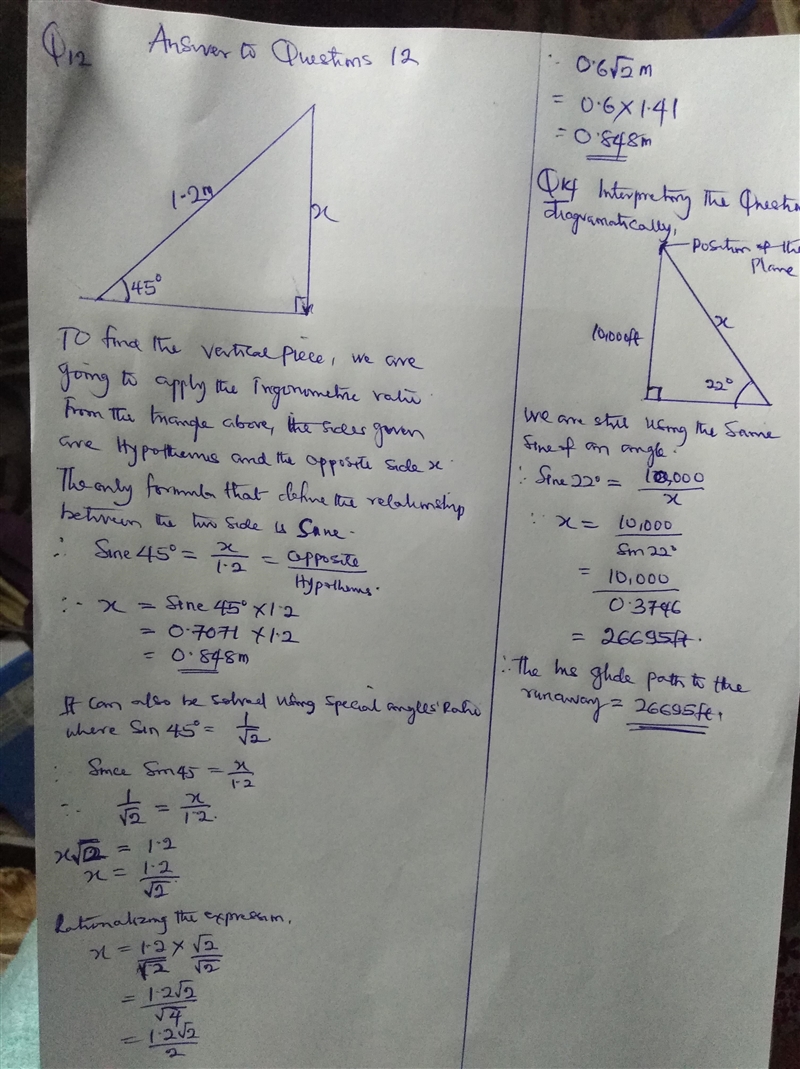 Q12 Answer to Questions 12
1.2m
x
45°
To find the vertical piece, we are
going to apply the Trigonometric ratio
From the triangle above, the sides given
are Hypothenus and the opposite side x.
The only formula that define the relationship
between the two side is Sine.
∴ Sine 45° = x/1.2 = opposite/Hypothenus.
∴ x = Sine 45° × 1.2
= 0.7071 × 1.2
= 0.848m
It can also be solved using special angles' Ratio
where Sin 45° = 1/√2
∴ Since Sin 45 = x/1.2
∴ 1/√2 = x/1.2.
x√2 = 1.2
x = 1.2/√2
Rationalizing the expression.
x = 1.2/√2 × √2/√2
= 1.2√2/√4
= 1.2√2/2
∴ 0.6√2 m
= 0.6 × 1.41
= 0.848m
Q14 Interpreting the Question
diagramatically,
Position of the
Plane
10,000ft
x
22°
We are still using the same
Sine of an angle.
∴ Sine 22° = 10,000/x
∴ x = 10,000/Sin 22°
= 10,000/0.3746
= 26695ft.
∴ The glide path to the
runaway = 26695ft.